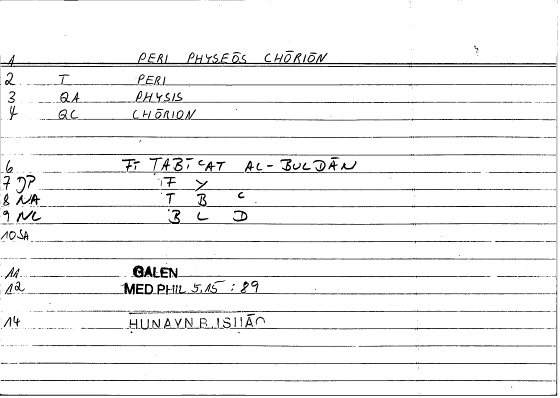 1 PERI PHYSEŌS CHŌRIŌN
2 T PERI
3 QA PHYSIS
4 QC CHŌRION
6 FĪ ṬABĪʿAT AL-BULDĀN
7 DP F Y
8 NA Ṭ B ʿ
9 NL B L D
10 SA
11 GALEN
12 MED PHIL 5.15 : 89
14 ḤUNAYN B. ISḤĀQ